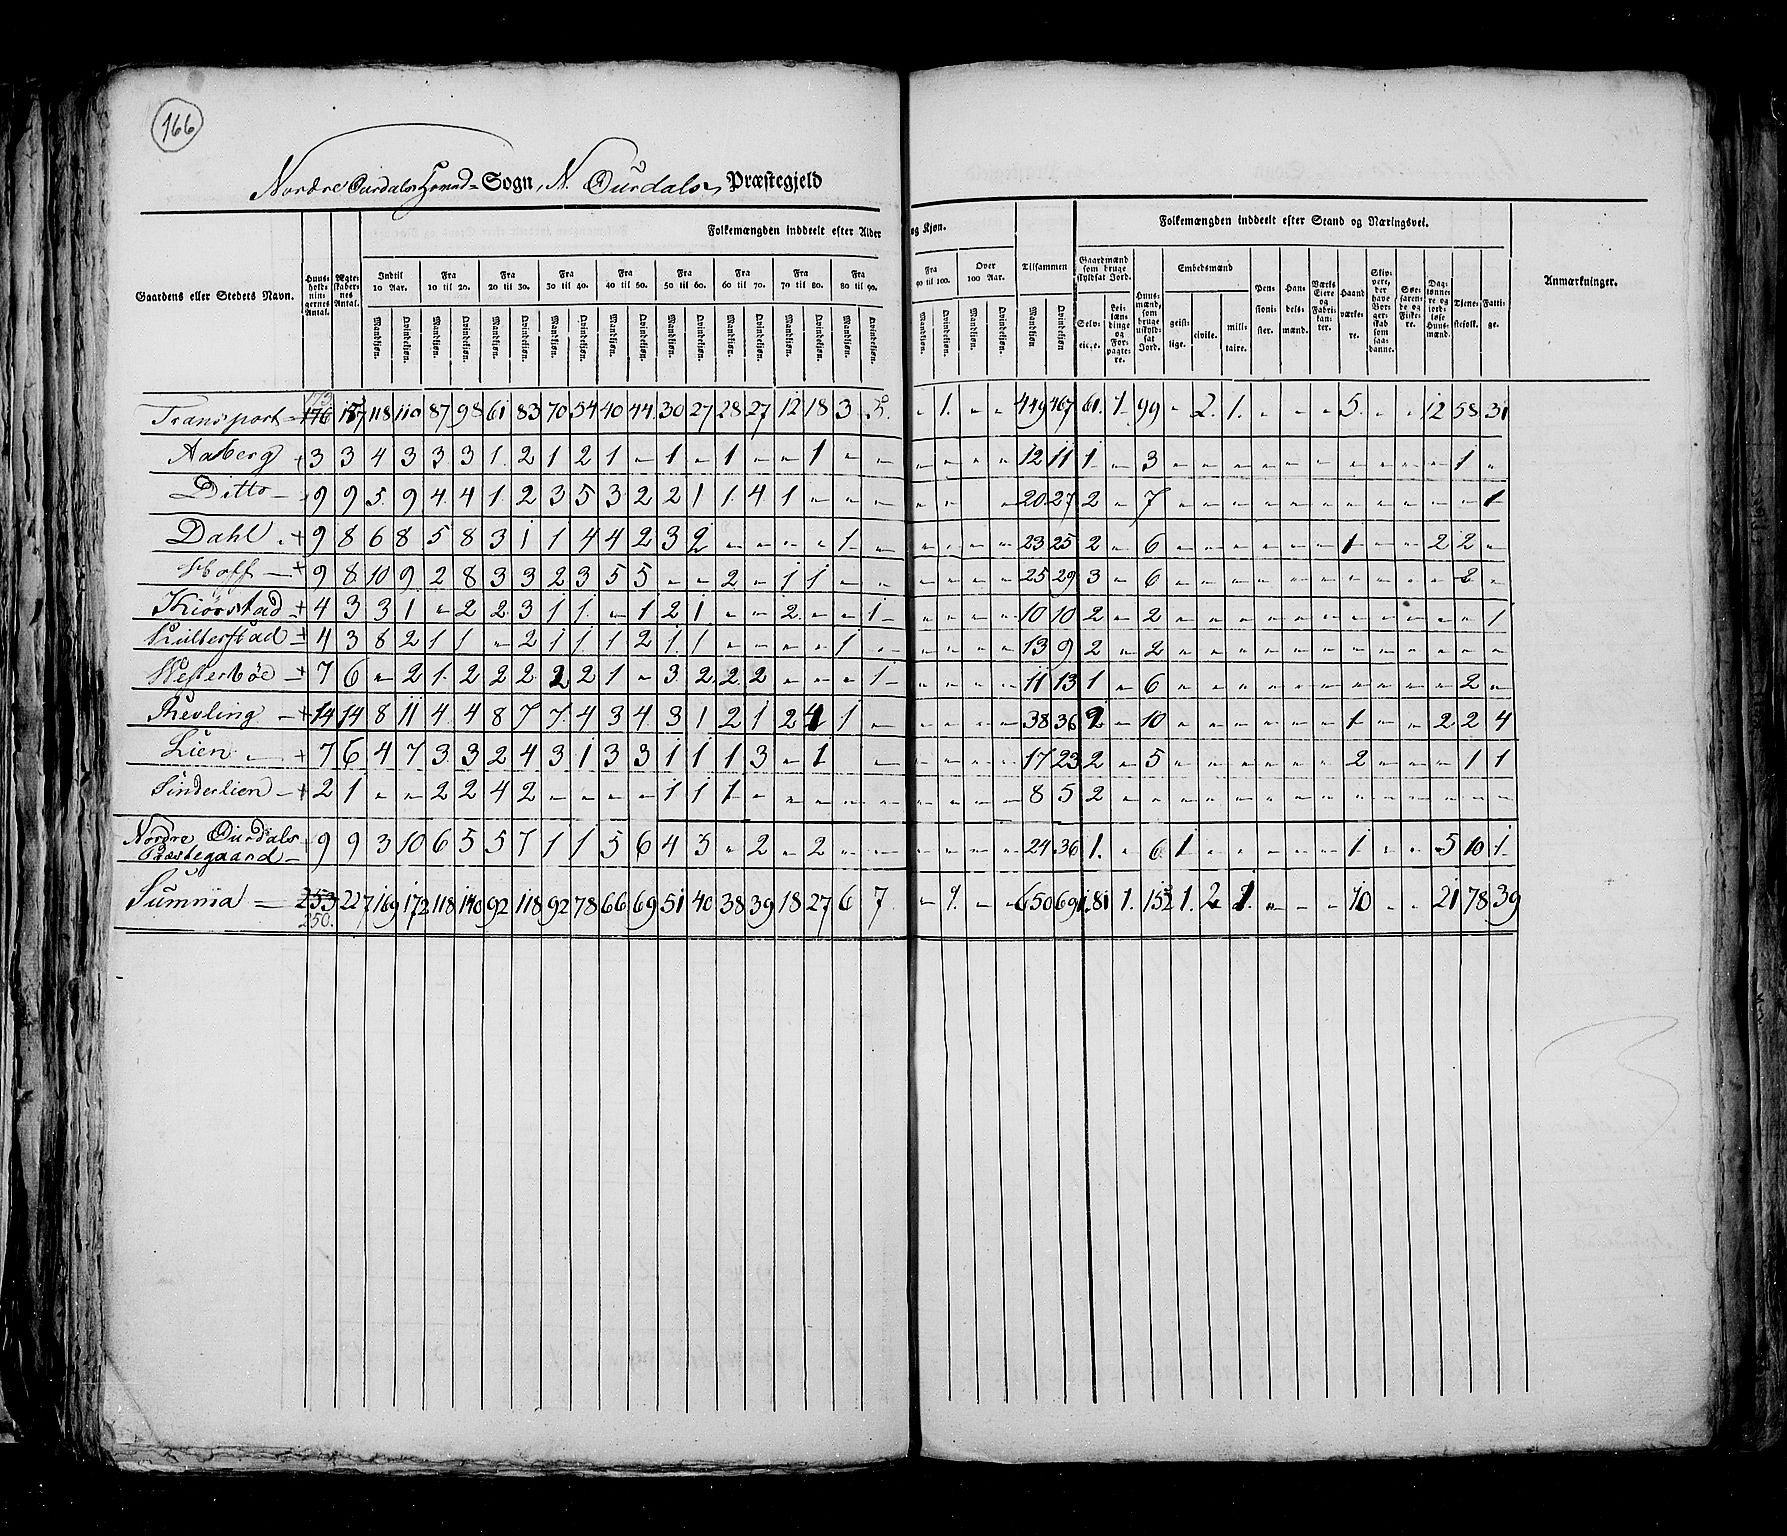 166
Nordre Ourdals Hoved- Sogn, N. Ourdals Præstegjeld
Folkemængden inddeelt efter Alder og Kjøn. Folkemængden inddeelt efter Stand og Næringsvei.
Gaardens eller Stedets Navn. Huus-holdningernes Antal. Ægteskabernes Antal. Indtil 10 Aar. Fra 10 til 20. Fra 20 til 30. Fra 30 til 40. Fra 40 til 50. Fra 50 til 60. Fra 60 til 70. Fra 70 til 80. Fra 80 til 90. Fra 90 til 100. Over 100 Aar. Tilsammen Gaardmænd som bruge skyldsat Jord. Huusmænd, som bruge uskyldsat Jord. Embedsmænd Pensionister. Handelsmænd. Værks Eiere og Fabrikanter. Haandværkere. Skippere, der have Borgerskab som saadanne. Søefarende og Fiskere. Daglønnere og jordløse Huusmænd. Tjenestefolk. Fattige. Anmærkninger.
Mandkjøn. Qvindekjøn. Mandkjøn. Qvindekjøn. Mandkjøn. Qvindekjøn. Mandkjøn. Qvindekjøn. Mandkjøn. Qvindekjøn. Mandkjøn. Qvindekjøn. Mandkjøn. Qvindekjøn. Mandkjøn. Qvindekjøn. Mandkjøn. Qvindekjøn. Mandkjøn. Qvindekjøn. Mandkjøn. Qvindekjøn. Mandkjøn Qvindekjøn. Selveiere. Leilændinge og Forpagtere. geistlige. civile. militaire.
173
Transport 176 157 118 110 87 98 61 83 70 54 40 44 30 27 28 27 12 18 3 5. - 1. - - 449 467 61. 1. 99 - 2. 1. - - - 5. - - 12 58 31
Aaberg + 3 3 4 3 3 3 1. 2 1 2 1 - 1 - 1 - - 1 - - - - - - 12 11 1 - 3 - - - - - - - - - - 1 -
Ditto - 9 9 5. 9 4 4 1. 2 3 5 3 2 2 1 1. 4 1 - - - - - - - 20 27 2 - 7 - - - - - - - - - - - 1
Dahl + 9 8 6 8 5 8 3 1 1 4 4 2 3 2 - - - - 1 - - - - - 23 25 2 - 6 - - - - - - 1 - - 2 2 -
Hoff - + 9 8 10 9 2 8 3 3 2 3 5 5 - - 2 - 1 1 - - - - - - 25 29 3 - 6 - - - - - - - - - - 2 -
Kiørstad + 4 3 3 1 - 2 2 3 1 1. - 1 2 1 - - 2 - - 1 - - - - 10 10 2 - 2 - - - - - - - - - - - 1
+ 4 3 8 2 1 1 - 2 1 1 1 2 1. 1 - - - - 1 - - - - - 13 9 2 - 2 - - - - - - - - - - - -
Westerbøe + 7 6 - 2 1. 2 2 2 2 2 1 - 3 2 2 2 - - - 1 - - - - 11 13 1 - 6 - - - - - - - - - - 2 -
+ 14 14 8 11 4 4 8 7 7 4 3 4 3 1 2 1 2 4 1 - - - - - 38 36 2 - 10 - - - - - - 1 - - 2 2 4
Lien + 7 6 4 7 3 3 2 4 3 1 3 3 1 1 1 3 - 1 - - - - 17 23 2 - 5 - - - - - - 2 - - - 1 1
Sinderlien + 2 1 - - 2 2 4 2 - - - - 1 1 1 - - - - - - - - - 8 5 2 - - - - - - - - - - - - - -
Nordre Ourdals
Præstegaard - 9 9 3 10 6 5 5 7 1 1 5 6 4 3 - 2 - 2 - - - - - - 24 36 1. - 6 1 - - - - - 1 - - 5 10 1
Summa - 253 227 169 172 118 140 92 118 92 78 66 69 51 40 38 39 18 27 6 7 - 1. - - 650 691 81 1. 152 1. 2 1. - - - 10 - - 21 78 39
250.